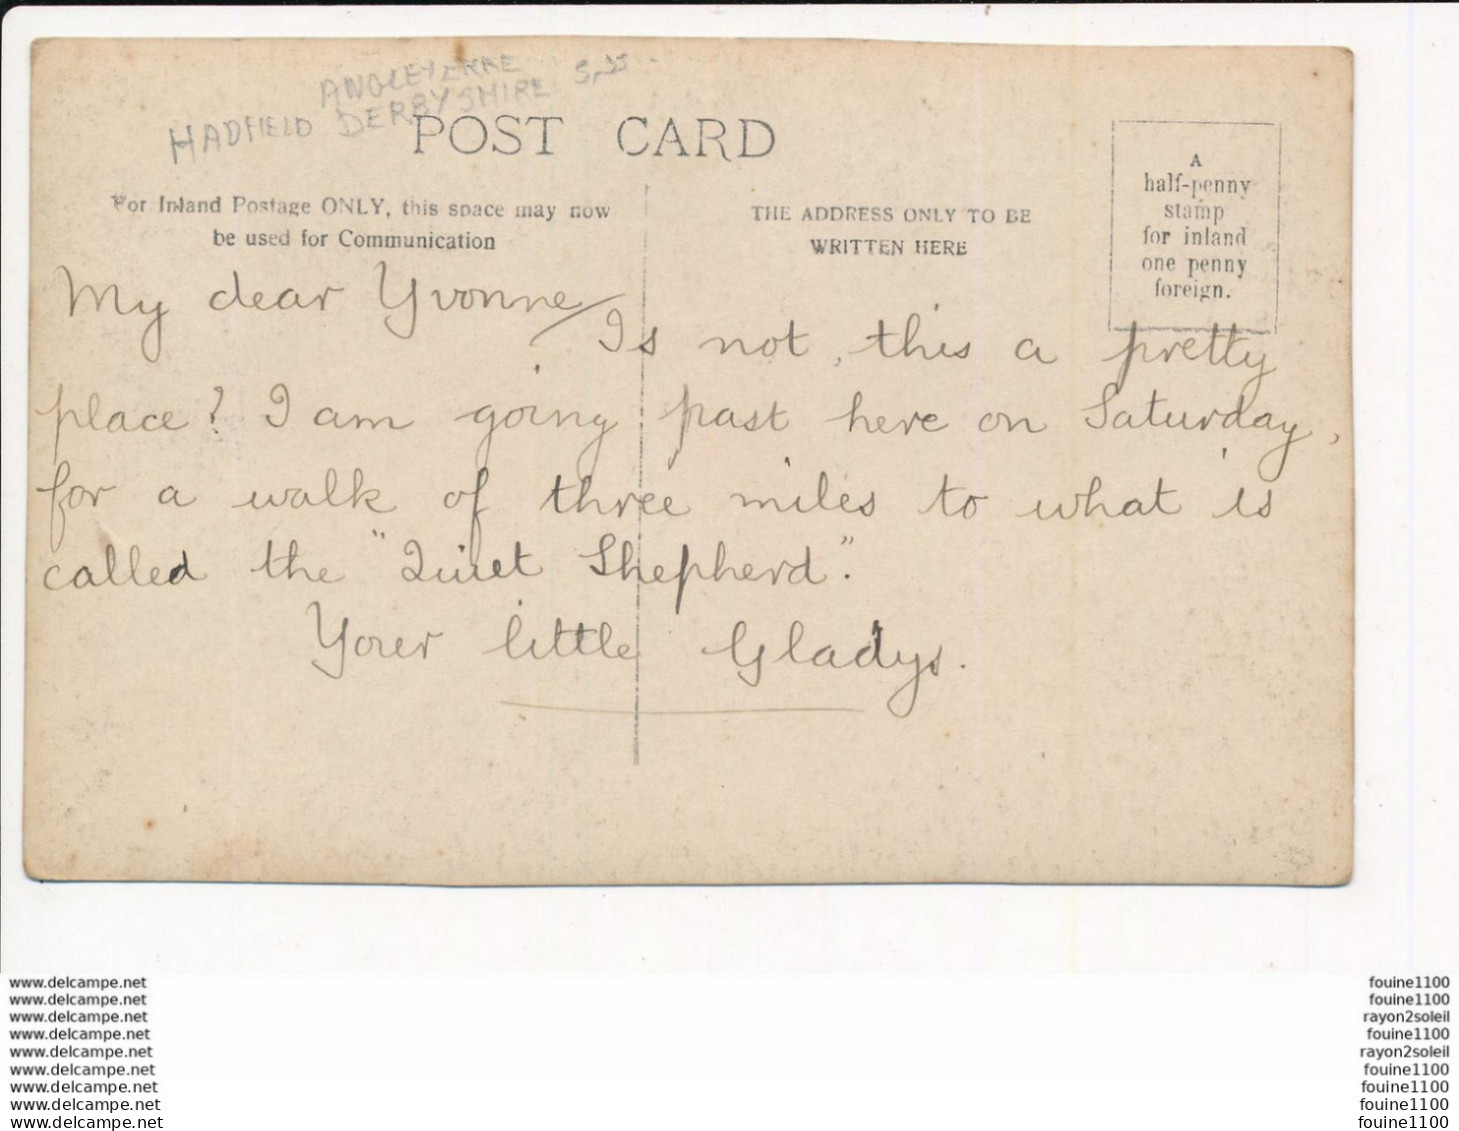 ANGLEYERRE
HADFIELD DERBYSHIRE
POST CARD
For Inland Postage ONLY, this space may now
be used for Communication
THE ADDRESS ONLY TO BE
WRITTEN HERE
A
half-penny
stamp
for inland
one penny
foreign.
My dear Yvonne
Is not, this a pretty
place? I am going past here on Saturday,
for a walk of three miles to what is
called the "Quiet Shepherd".
Your little Gladys.
www.delcampe.net
www.delcampe.net
www.delcampe.net
www.delcampe.net
www.delcampe.net
www.delcampe.net
www.delcampe.net
www.delcampe.net
www.delcampe.net
fouine1100
fouine1100
rayon2soleil
fouine1100
rayon2soleil
fouine1100
fouine1100
fouine1100
fouine1100